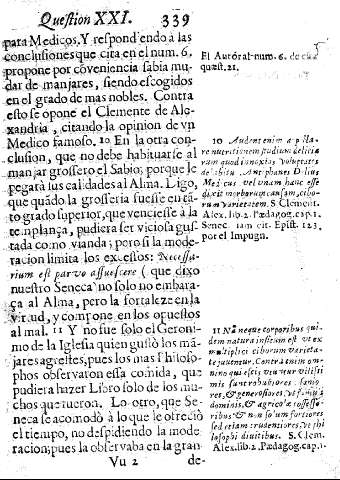 Question XXI. 339
para Medicos. Y respondiendo à las
conclusiones que cita en el num. 6,
propone por cõveniencia sabia mu-
dar de manjares, siendo escogidos
en el grado de mas nobles. Contra
esto se opone el Clemente de Ale-
xandria, citando la opinion de vn
Medico famoso. 10 En la otra con-
clusion, que no debe habituarse al
manjar grossero el Sabio, porque le
pegarà sus calidades al Alma. Digo,
que quãdo la grosseria fuesse en tã-
to grado superior, que venciesse à la
templança, pudiera ser viciosa gus-
tada como vianda; pero si la mode-
racion limita los excessos: Necessa-
rium est parvo assuescere ( que dixo
nuestro Seneca) no solo no embara-
ça al Alma, pero la fortaleze en la
virtud, y compone en los opuestos
al mal. 11 Y no fue solo el Geroni-
mo de la Iglesia quien gustò los mã-
jares agrestes, pues los mas Philoso-
phos observaron essa comida, que
pudiera hazer Libro solo de los mu-
chos que fueron. Lo otro, que Se-
neca se acomodò à lo que le ofreciò
el tiempo, no despidiendo la mode-
racion; pues la observaba en la gran-
Vu 2 de-
El Autor al num. 6. de
quæst. 21.
10 Audent enim
re nutritionem studium
rum quod innoxias voluptates
Antiphanes Delius
Medicus vel vnam hanc esse
dixit morborum causam, cibo-
rum varietatem. S. Clement.
Alex. lib. 2. Pædagog. cap. 1.
Senec. iam cit. Epist. 123.
por el Impugn.
11 Nã neque corporibus qui-
dem natura insitum est vt ex
multiplici ciborum varieta-
te juventur. Contra enim om-
nino qui escis vtuntur vilissi-
mis sunt robustiores, sanio
res, & generosiores, vt famuli
dominis, & agricolæ possesso-
ribus: & non solum fortiores
sed etiam prudentiores, vt Phi
losophi divitibus. S. Clem.
Alex. lib. 2. Pædagog. cap. 1.